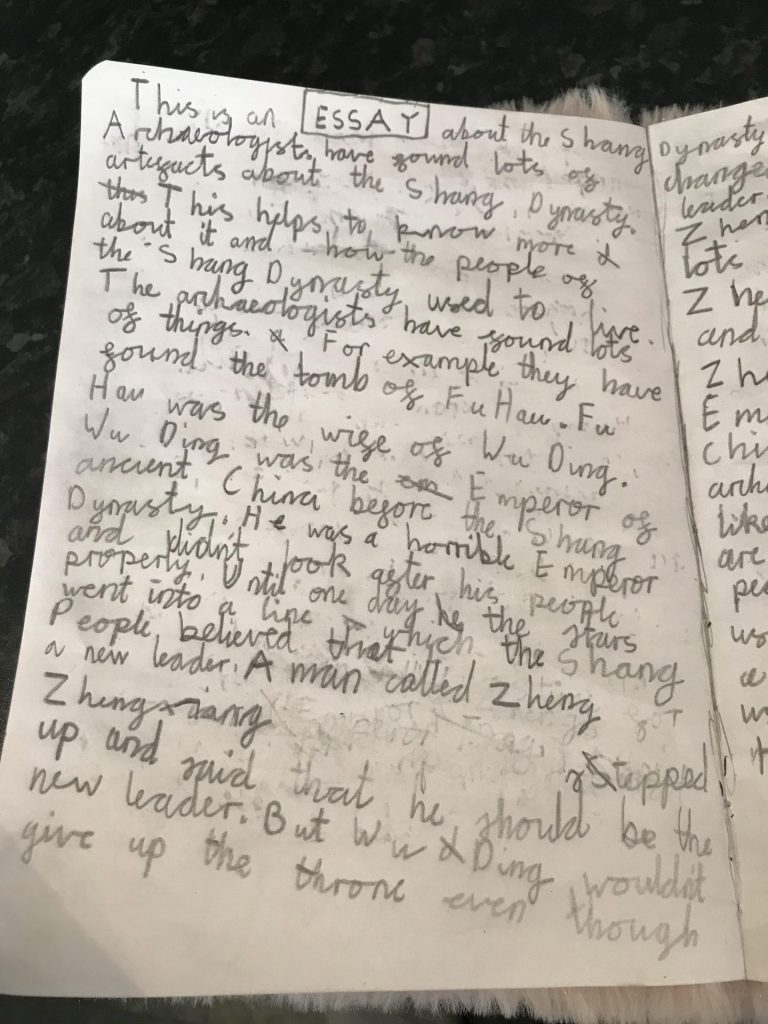 This is an ESSAY about the Shang
Archaeologists have found lots of
artefacts about the Shang Dynasty.
this This helps to know more
about it and how the people of
the Shang Dynasty used to live.
The archaeologists have found lots
of things. For example they have
found the tomb of Fu Hau. Fu
Hau was the wife of Wu Ding.
Wu Ding was the em Emperor of
ancient China before the Shang
Dynasty. He was a horrible Emperor
and didn't look after his people
properly. Until one day he the stars
went into a line which the Shang
People believed that
a new leader. A man called Zheng
Zhengxiang
Stepped
up and said that he should be the
new leader. But Wu Ding wouldn't
give up the throne even though
Dynasty
change
leader
Zhen
lots
Zhe
and
Zh
Em
Chi
arch
like
are
peo